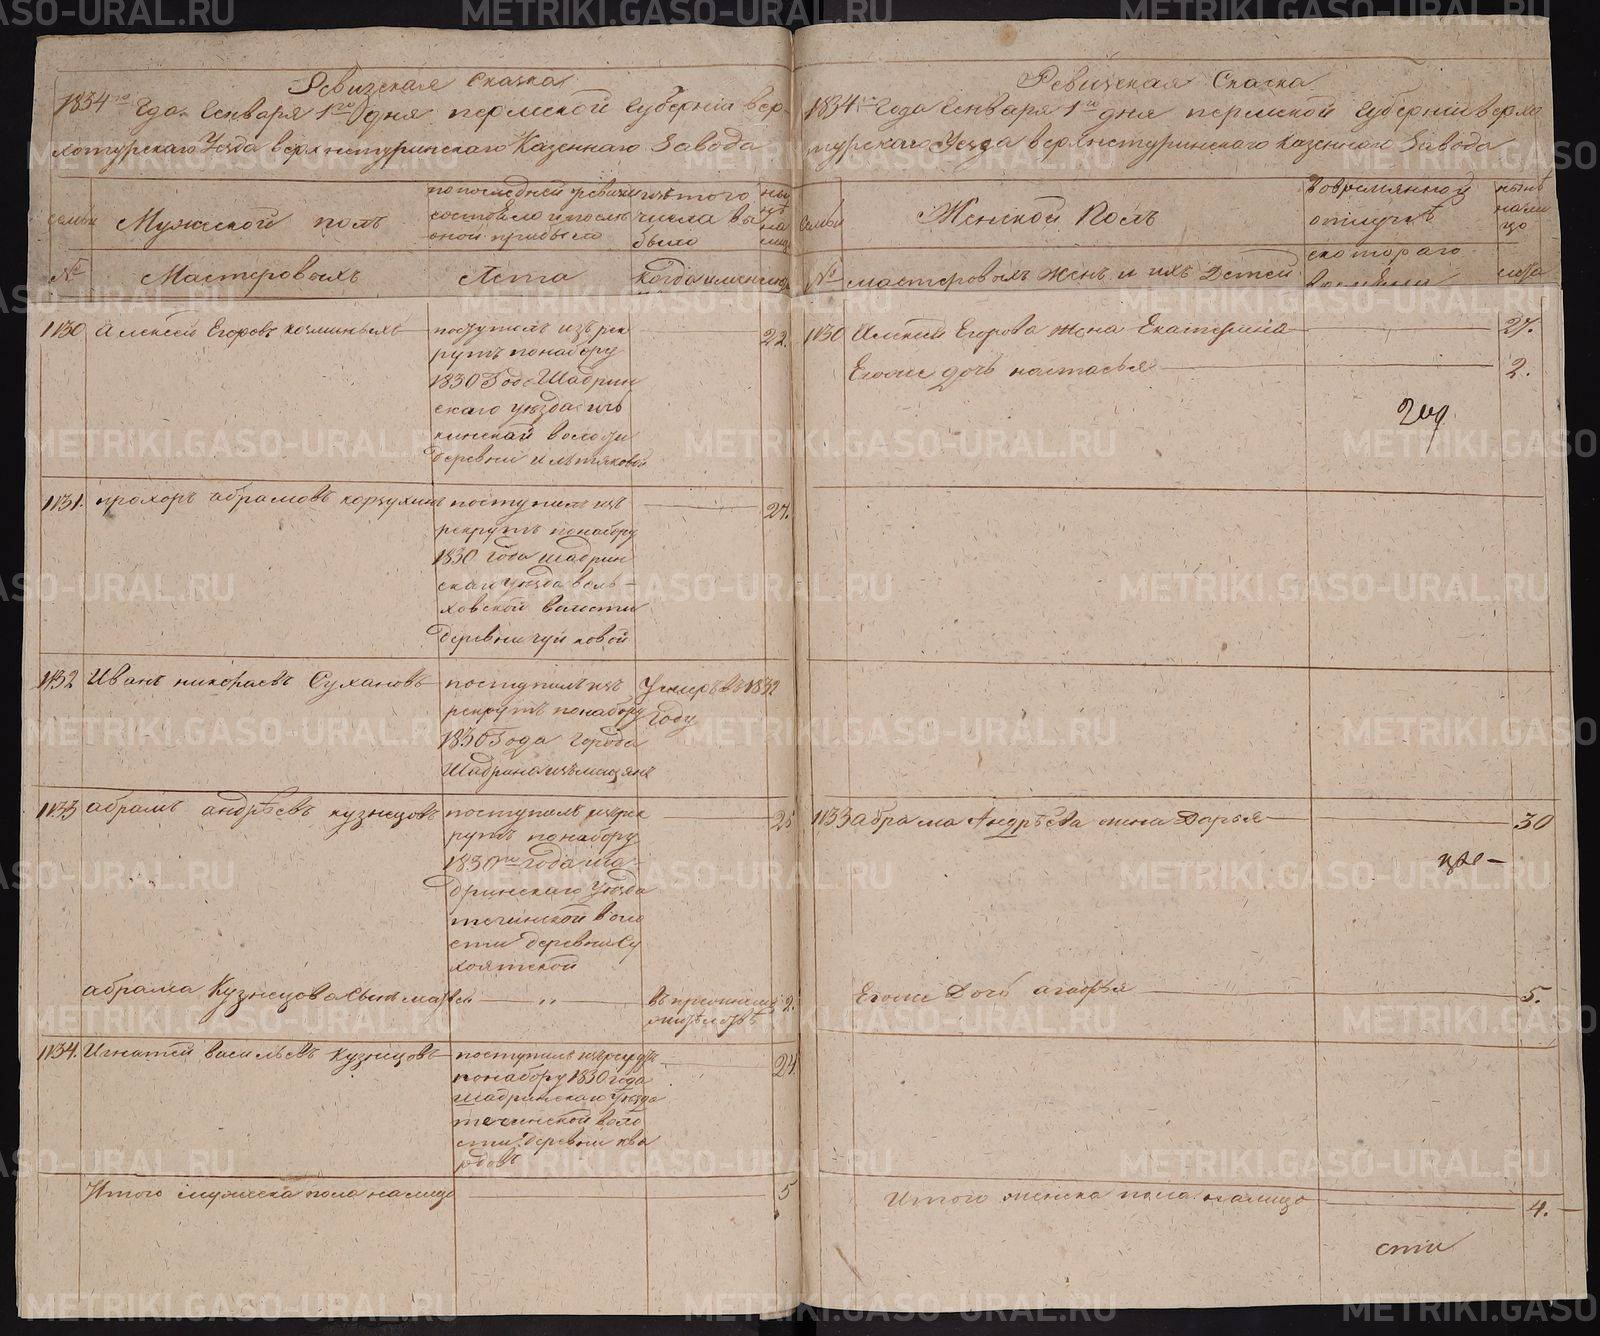 Ревизская Сказка
1834го Года Генваря 1го дня пермской Губерніи вер-
хотурскаго Уезда верхнетуринскаго Казеннаго Завода
семьи
Мужеской полъ
по последней ревизіи
состояло и после
оной прибыло
изъ того
числа вы
было
ны
не
на
лицо
№
Мастеровыхъ
Лета
когда именно
1130 Алексей Егоровъ
поступилъ изъ рек
рутъ понабору
1830 Года Шадрин
скаго уезда
волости
деревни
22.
1131. прохоръ абрамовъ корзухинъ
поступилъ изъ
рекрутъ понабору
1830 года шадрин
скаго уезда воль-
ховской волости
деревни
27.
1132 Иванъ Сухановъ
поступилъ изъ
рекрутъ понабору
1830 Года города
Шадрина изъ мещанъ
Умеръ въ 1832
году
1133 абрамъ андрѣевъ кузнецовъ
поступилъ изъ рек
рутъ понабору
1830го года ша-
дринскаго уезда
теченской воло
сти деревни Су
хоятской
25
абрама Кузнецова сынъ
„
2.
1134. Игнатей васильевъ кузнецовъ
поступилъ изъ рекрутъ
понабору 1830 года
Шадринскаго уезда
теченской воло
сти деревни ква
24
Итого мужеска пола налицо
5
Ревизская Сказка
1834го Года Генваря 1го дня пермской Губерніи верхо
турскаго Уезда верхнетуринскаго казеннаго Завода
семьи
Женской Полъ
Вовремянной
отлучкѣ
нынѣ
нали
цо
№
мастеровыхъ женъ и ихъ Детей
скотораго
времени
лета
1130 Алексея Егорова жена Екатерина
27.
Егоже дочь настасья
2.
1133 абрама Андрѣева жена Дарья
30
Егоже Дочь агафья
5.
Итого женска пола налицо
4.
METRIKI.GASO-URAL.RU